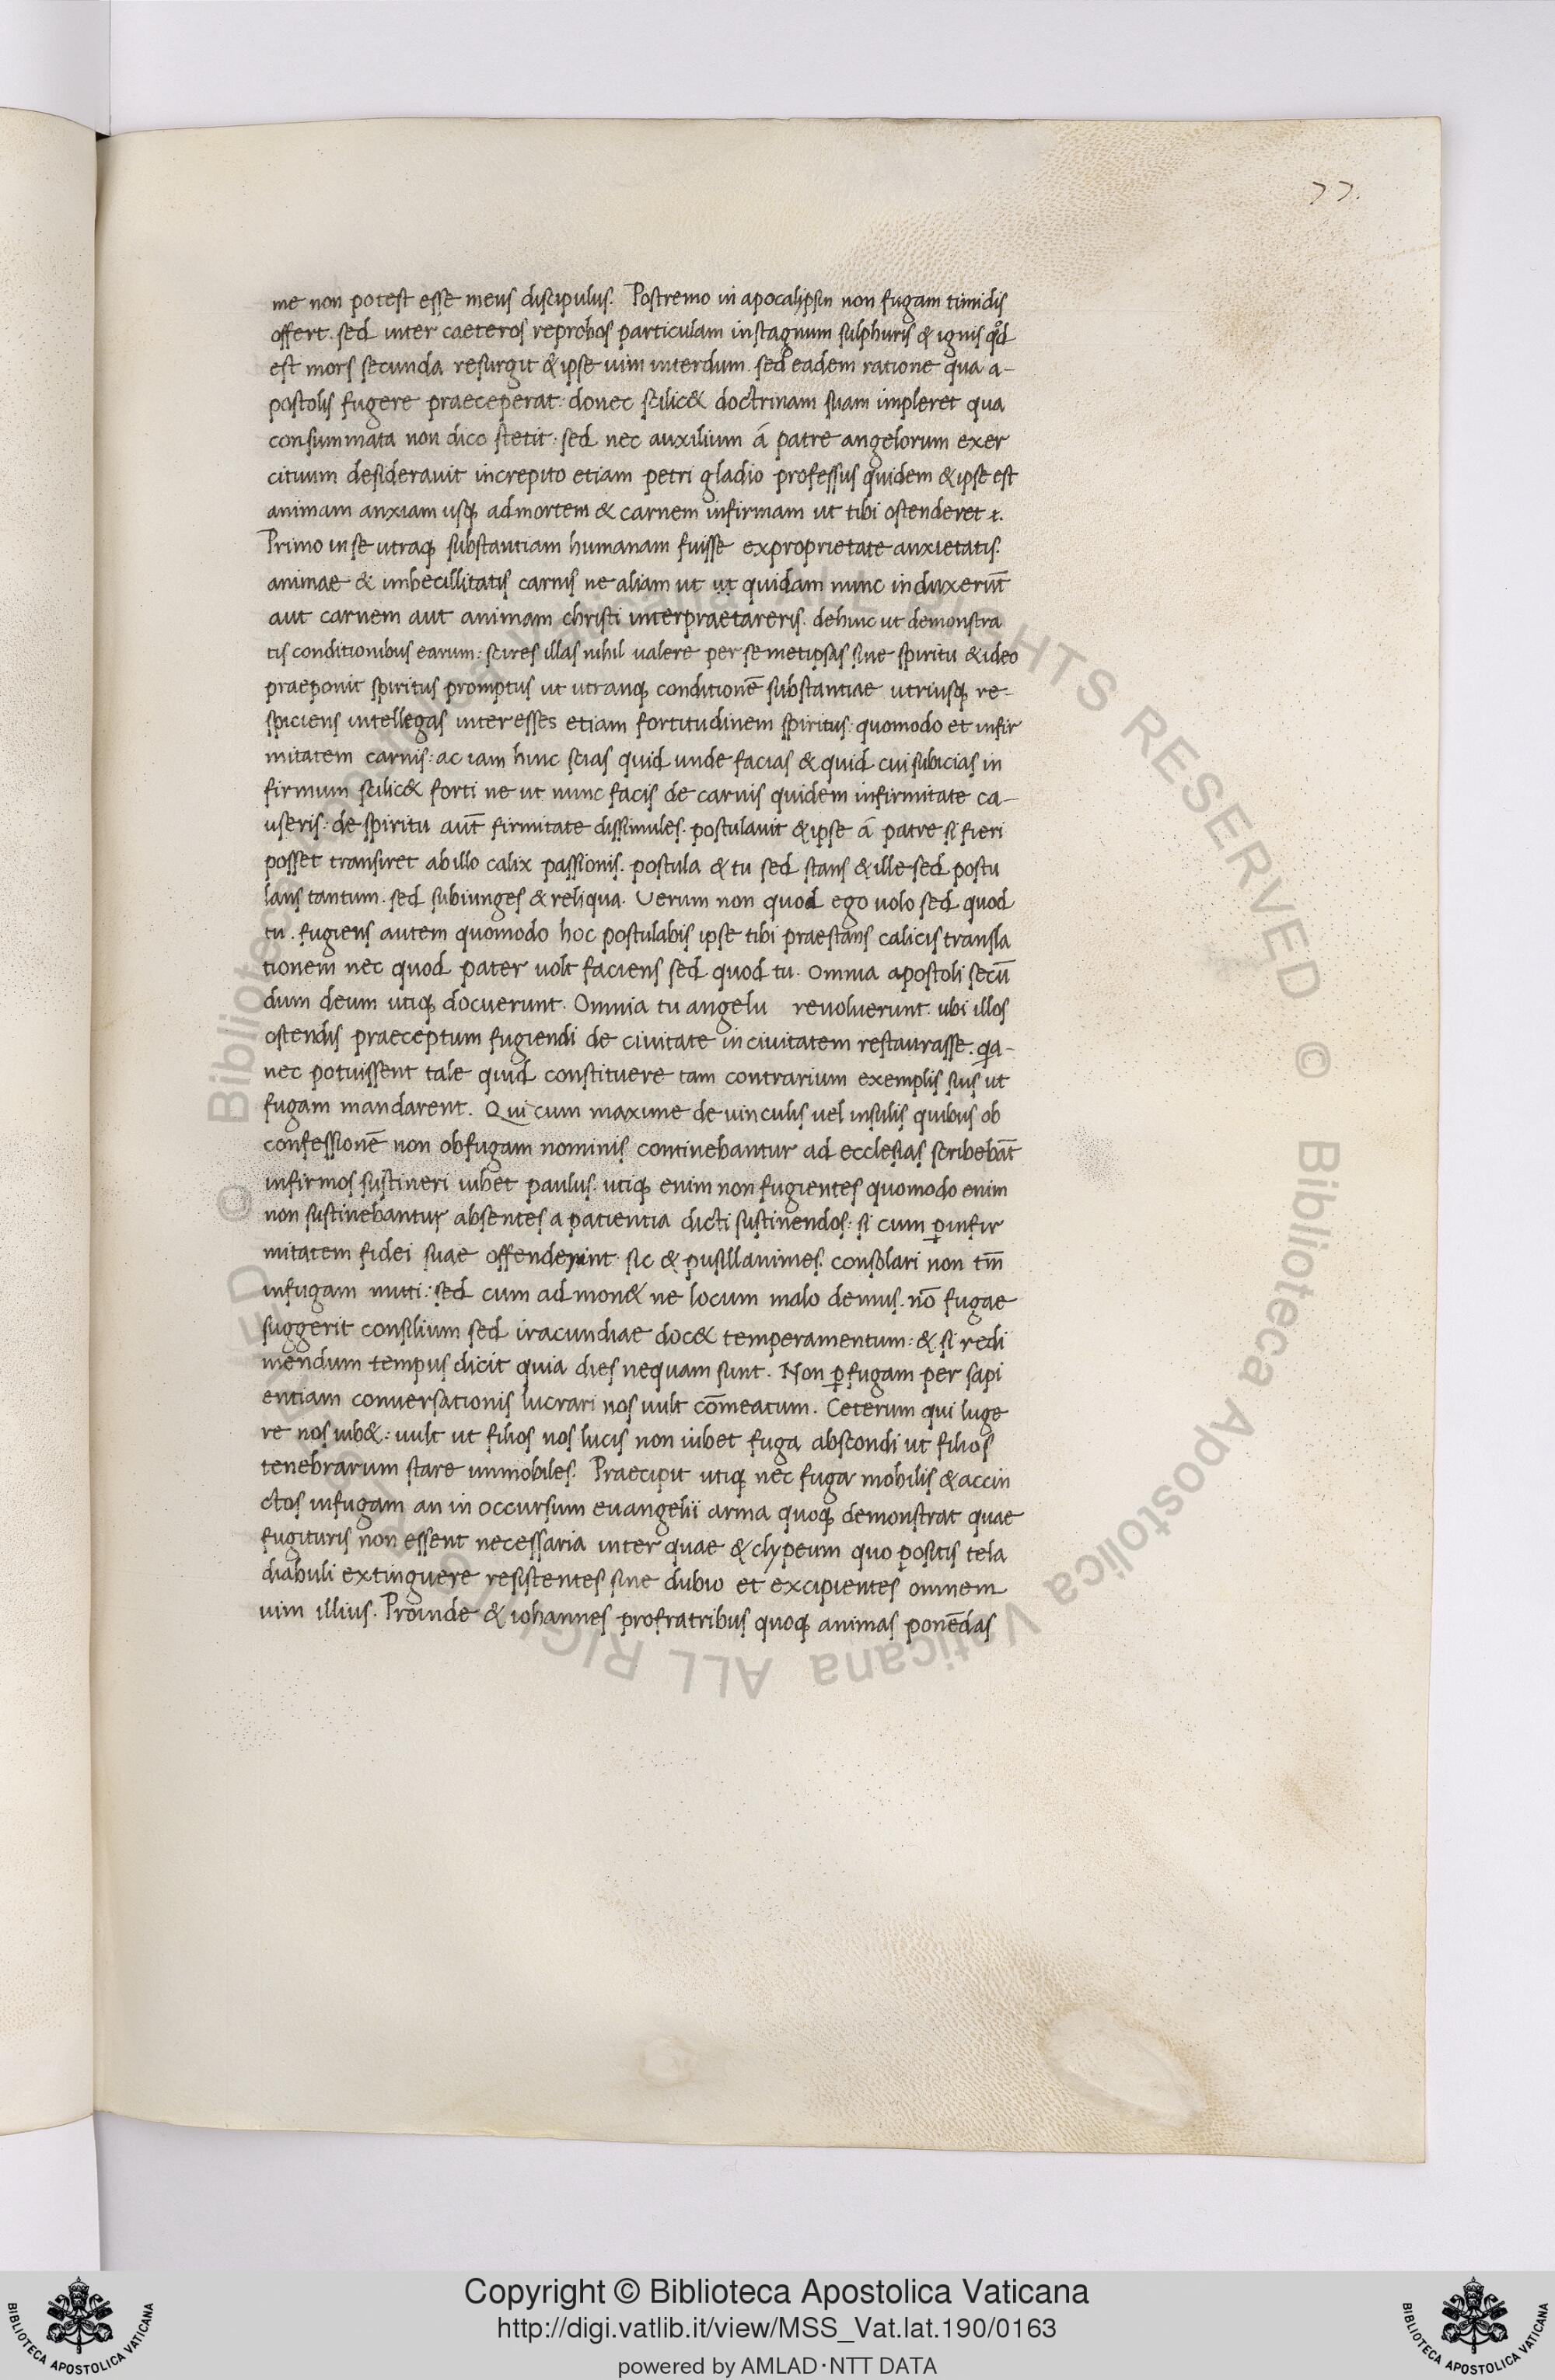 77.
me non potest esse meus discipulus. Postremo in apocalypsin non fugam timidis
offert. sed inter caeteros reprobos particulam instagnum sulphuris & ignis qđ
est mors secunda resurgit & ipse uim interdum. sed eadem ratione qua a-
postolis fugere praeceperat: donec scilic& doctrinam suam impleret qua
consummata non dico stetit: sed nec auxilium á patre angelorum exer
cituum desiderauit increpito etiam petri gladio professus quidem & ipse est
animam anxiam usq; ad mortem & carnem infirmam ut tibi ostenderet
Primo in se utraq; substantiam humanam fuisse exproprietate anxietatis.
animae & imbecillitatis carnis ne aliam ut ut quidam nunc induxerūt
aut carnem aut animam christi interpraetareris. dehinc ut demonstra
tis conditionibus earum: scires illas nihil ualere per se metipsas sine spiritu & ideo
praeponit spiritus promptus ut utranq; conditionē substantiae utriusq; re-
spiciens intellegas interesses etiam fortitudinem spiritus: quomodo et infir
mitatem carnis: ac iam hinc scias quid unde facias & quid cui subicias in
firmum scilic& forti ne ut nunc facis de carnis quidem infirmitate ca-
useris: de spiritu aūt firmitate dissimules. postulauit & ipse á patre si fieri
posset transiret ab illo calix passionis. postula & tu sed stans & ille sed postu
lans tantum. sed subiunges & reliqua. Uerum non quod ego uolo sed quod
tu. fugiens autem quomodo hoc postulabis ipse tibi praestans calicis transla
tionem nec quod pater uolt faciens sed quod tu. Omnia apostoli secū
dum deum utiq; docuerunt. Omnia tu angelu reuoluerunt. ubi illos
ostendis praeceptum fugiendi de ciuitate in ciuitatem restaurasse. qa-
nec potuissent tale quid constituere tam contrarium exemplis suis ut
fugam mandarent. Qui cum maxime de uinculis uel insulis quibus ob
confessionē non obfugam nominis continebantur ad ecclesias scribebāt
infirmos sustineri iubet paulus. utiq; enim non fugientes quomodo enim
non sustinebantur absentes a patientia dicti sustinendos: si cum ꝑ infir
mitatem fidei suae offenderint sic & pusillanimes. consolari non tm̄
infugam mitti: sed cum admon& ne locum malo demus. nō fugae
suggerit consilium sed iracundiae doc& temperamentum: & si redi
mendum tempus dicit quia dies nequam sunt. Non ꝑ fugam per sapi
entiam conuersationis lucrari nos uult cōmeatum. Ceterum qui luge
re nos iub&: uult ut filios nos lucis non iubet fuga abscondi ut filios
tenebrarum stare immobiles. Praecipit utiq; nec fuga mobilis & accin
ctos infugam an in occursum euangelii arma quoq; demonstrat quae
fugituris non essent necessaria inter quae & clypeum quo positis tela
diabuli extinguere resistentes sine dubio et excipientes omnem
uim illius. Proinde & iohannes profratribus quoq; animas ponēdas
© Biblioteca Apostolica Vaticana ALL RIGHTS RESERVED © Biblioteca Apostolica Vaticana ALL RIGHTS RESERVED
Copyright © Biblioteca Apostolica Vaticana
http://digi.vatlib.it/view/MSS_Vat.lat.190/0163
powered by AMLAD·NTT DATA
BIBLIOTECA APOSTOLICA VATICANA
BIBLIOTECA APOSTOLICA VATICANA